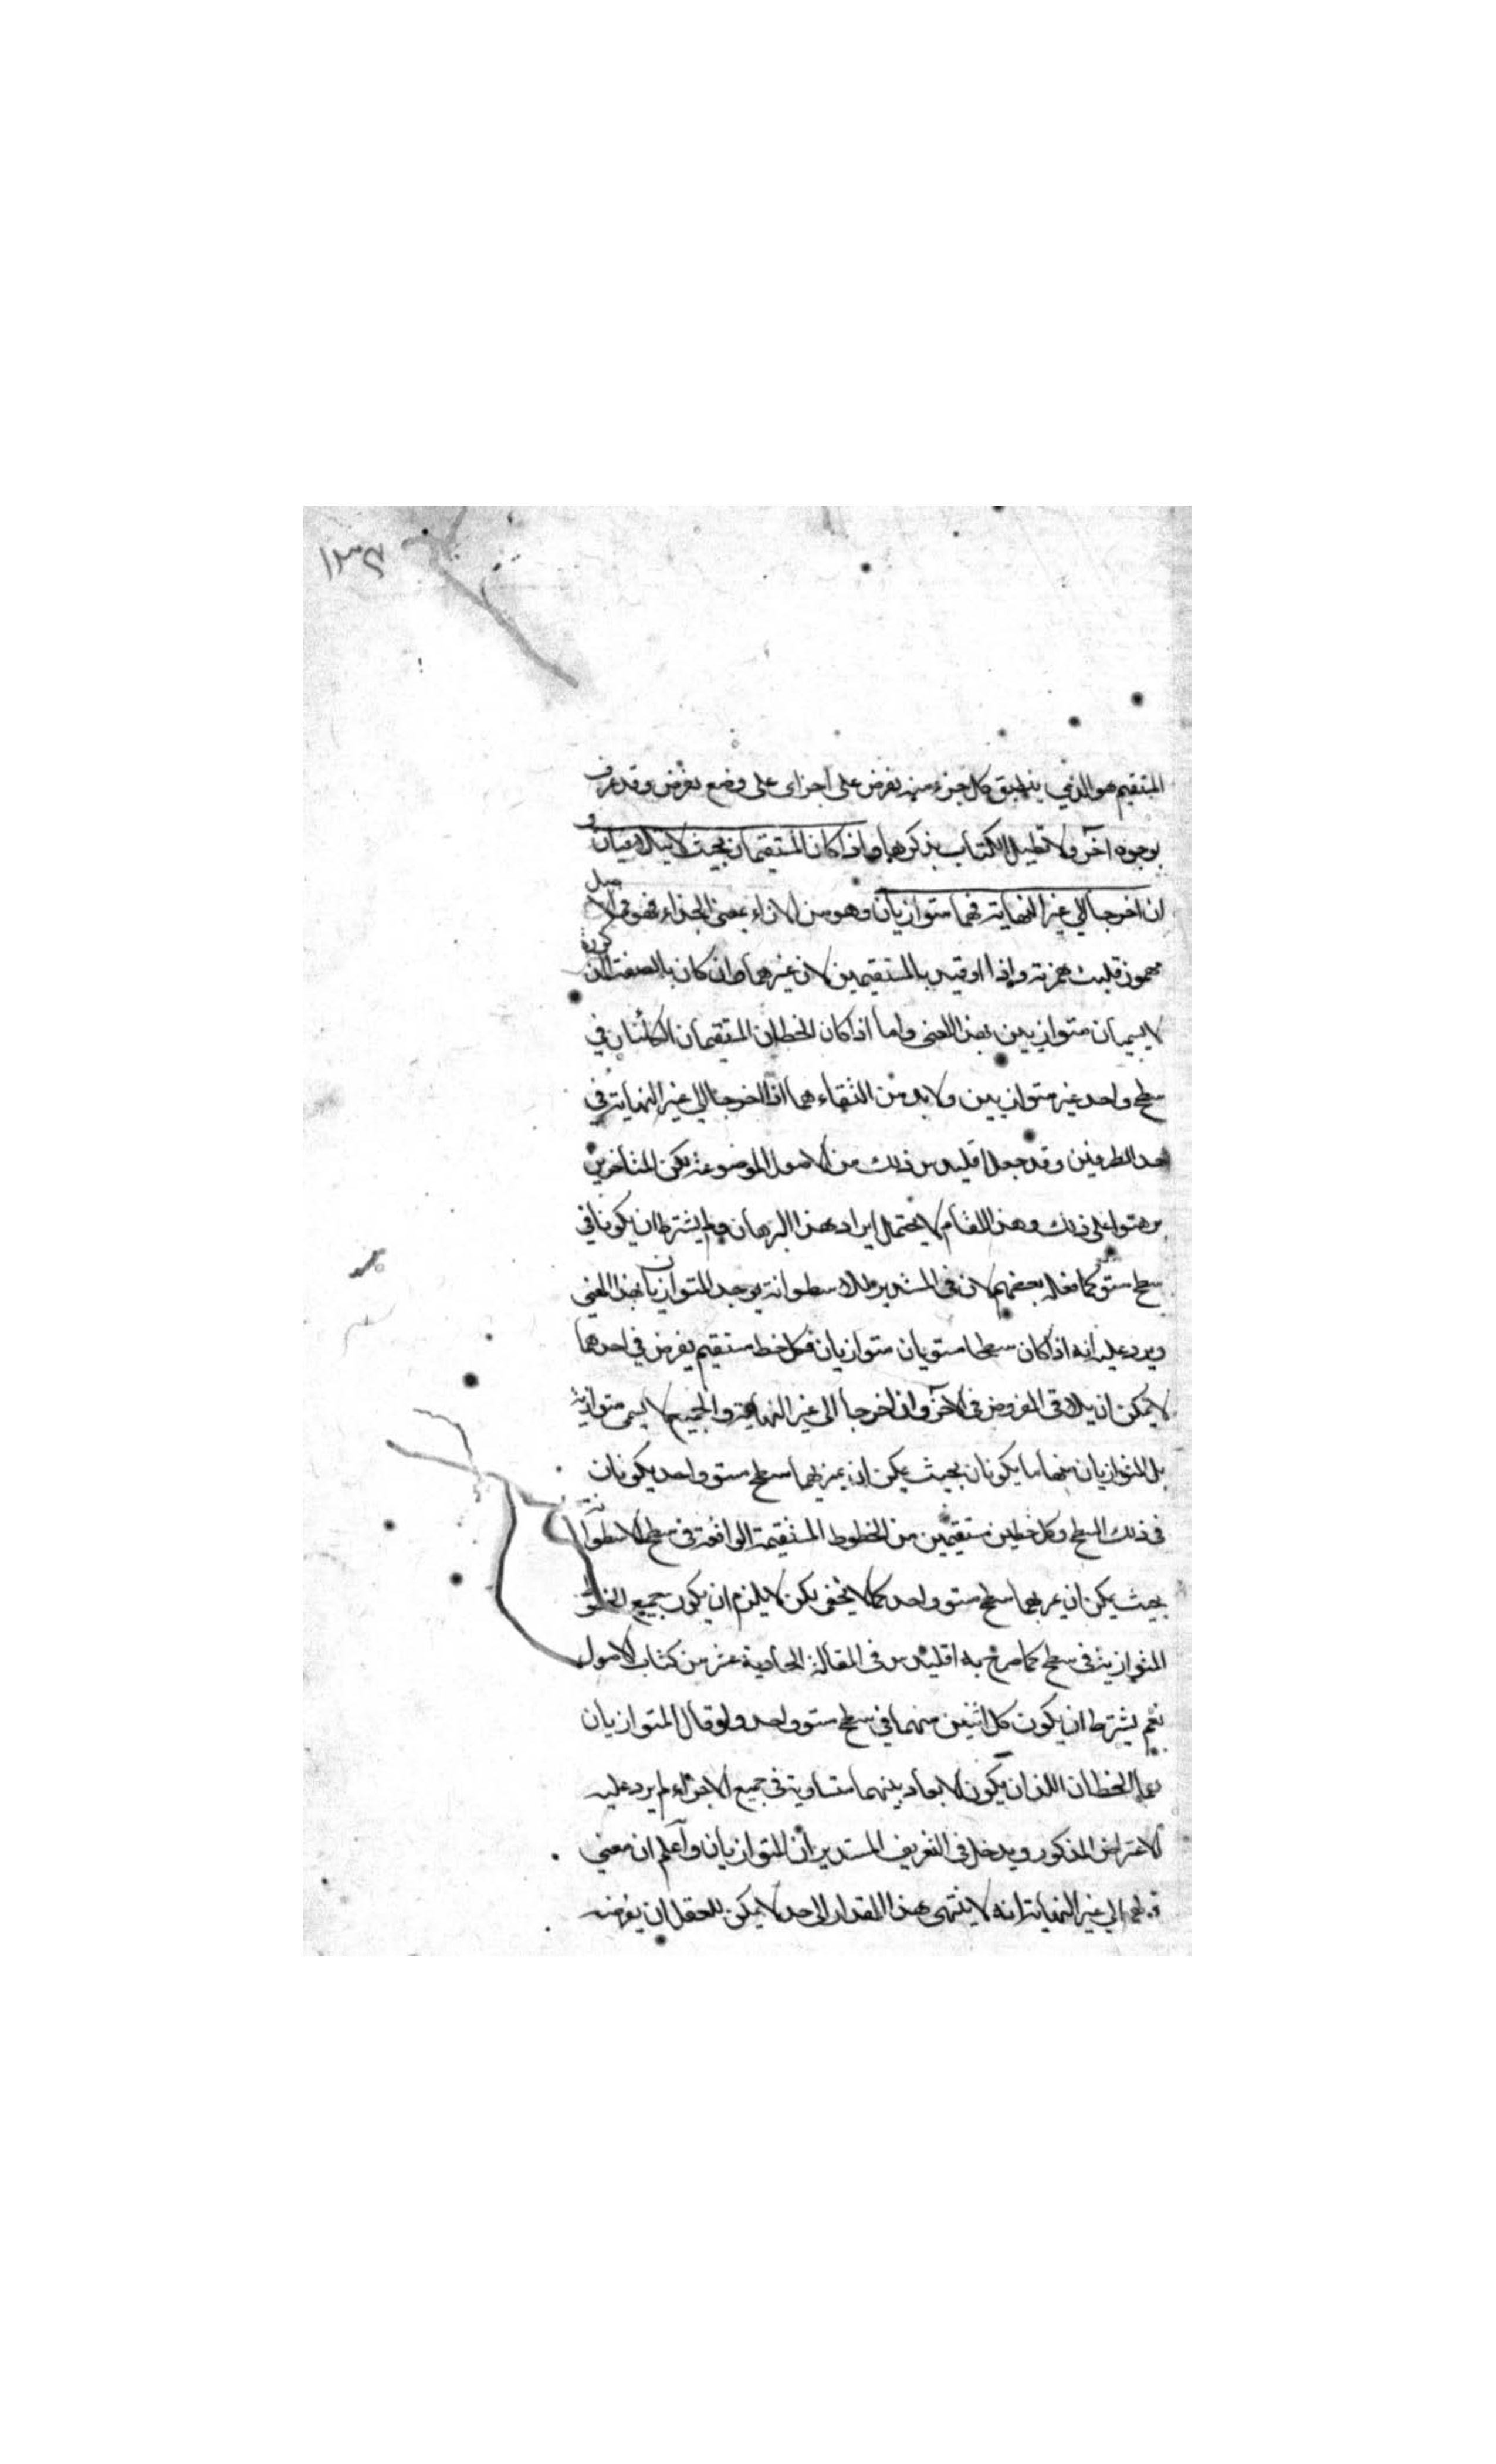 المستقيم هو الذي ينطبق كل جزء منه يفرض على اجزاى على وضع يفرض وقد عرف
بوجوه آخر ولا نطيل الكتاب بذكرها واذا كان المستقيمان بحيث لا يتلاقيان و
ان اخرجا الى غير النهاية فهما متوازيان وهو من الازاء بمعنى الحذاء فهو في الاصل
مهموز قلبت همزته وانما قيد بالمستقيمين لان غيرهما وان كان بالصفة المذكورة
لا يسميان متوازيين بهذا المعنى واما اذا كان الخطان المستقيمان الكائنان في
سطح واحد غير متوازيين ولابد من التقاءهما اذا اخرجا الى غير النهاية في
احد الطرفين وقد جعل اقليدس ذلك من الاصول الموضوعة لكن المتأخرين
برهنوا على ذلك وهذا المقام لا يحتمل ايراد هذا البرهان ولم يشترط ان يكونا في
سطح مستو كما فعله بعضهم لان في المستدير كالاسطوانة يوجد المتوازيان بهذا المعنى
ويرد عليه انه اذا كان سطحا مستويان متوازيان فكل خط مستقيم يفرض في احدها
لا يمكن ان يلاقى المفروض في الآخر وان اخرجا الى غير النهاية والجميع لا يسمى متوازية
بل المتوازيان منها ما يكونان بحيث يمكن ان يمر بهما سطح مستو واحد يكونان
في ذلك السطح وكل خطين مستقيمين من الخطوط المستقيمة الواقعة في سطح الاسطوانة
بحيث يمكن ان يمر بهما سطح مستو واحد كما لا يخفى لكن لا يلزم ان يكون جميع الخطوط
المتوازية في سطح كما صرح به اقليدس في المقالة الحادية عشر من كتاب الاصول
نعم يشترط ان يكون كل اثنين منهما في سطح مستو واحد ولو قال المتوازيان
هما الخطان اللذان يكون الابعاد بينهما متساوية في جميع الاجزاء لم يرد عليه
الاعتراض المذكور ويدخل في التعريف المستديران المتوازيان وآعلم ان معنى
قولهم الى غير النهاية انه لا ينتهى هذا المقدار الى حد لا يمكن للعقل ان يفرضه